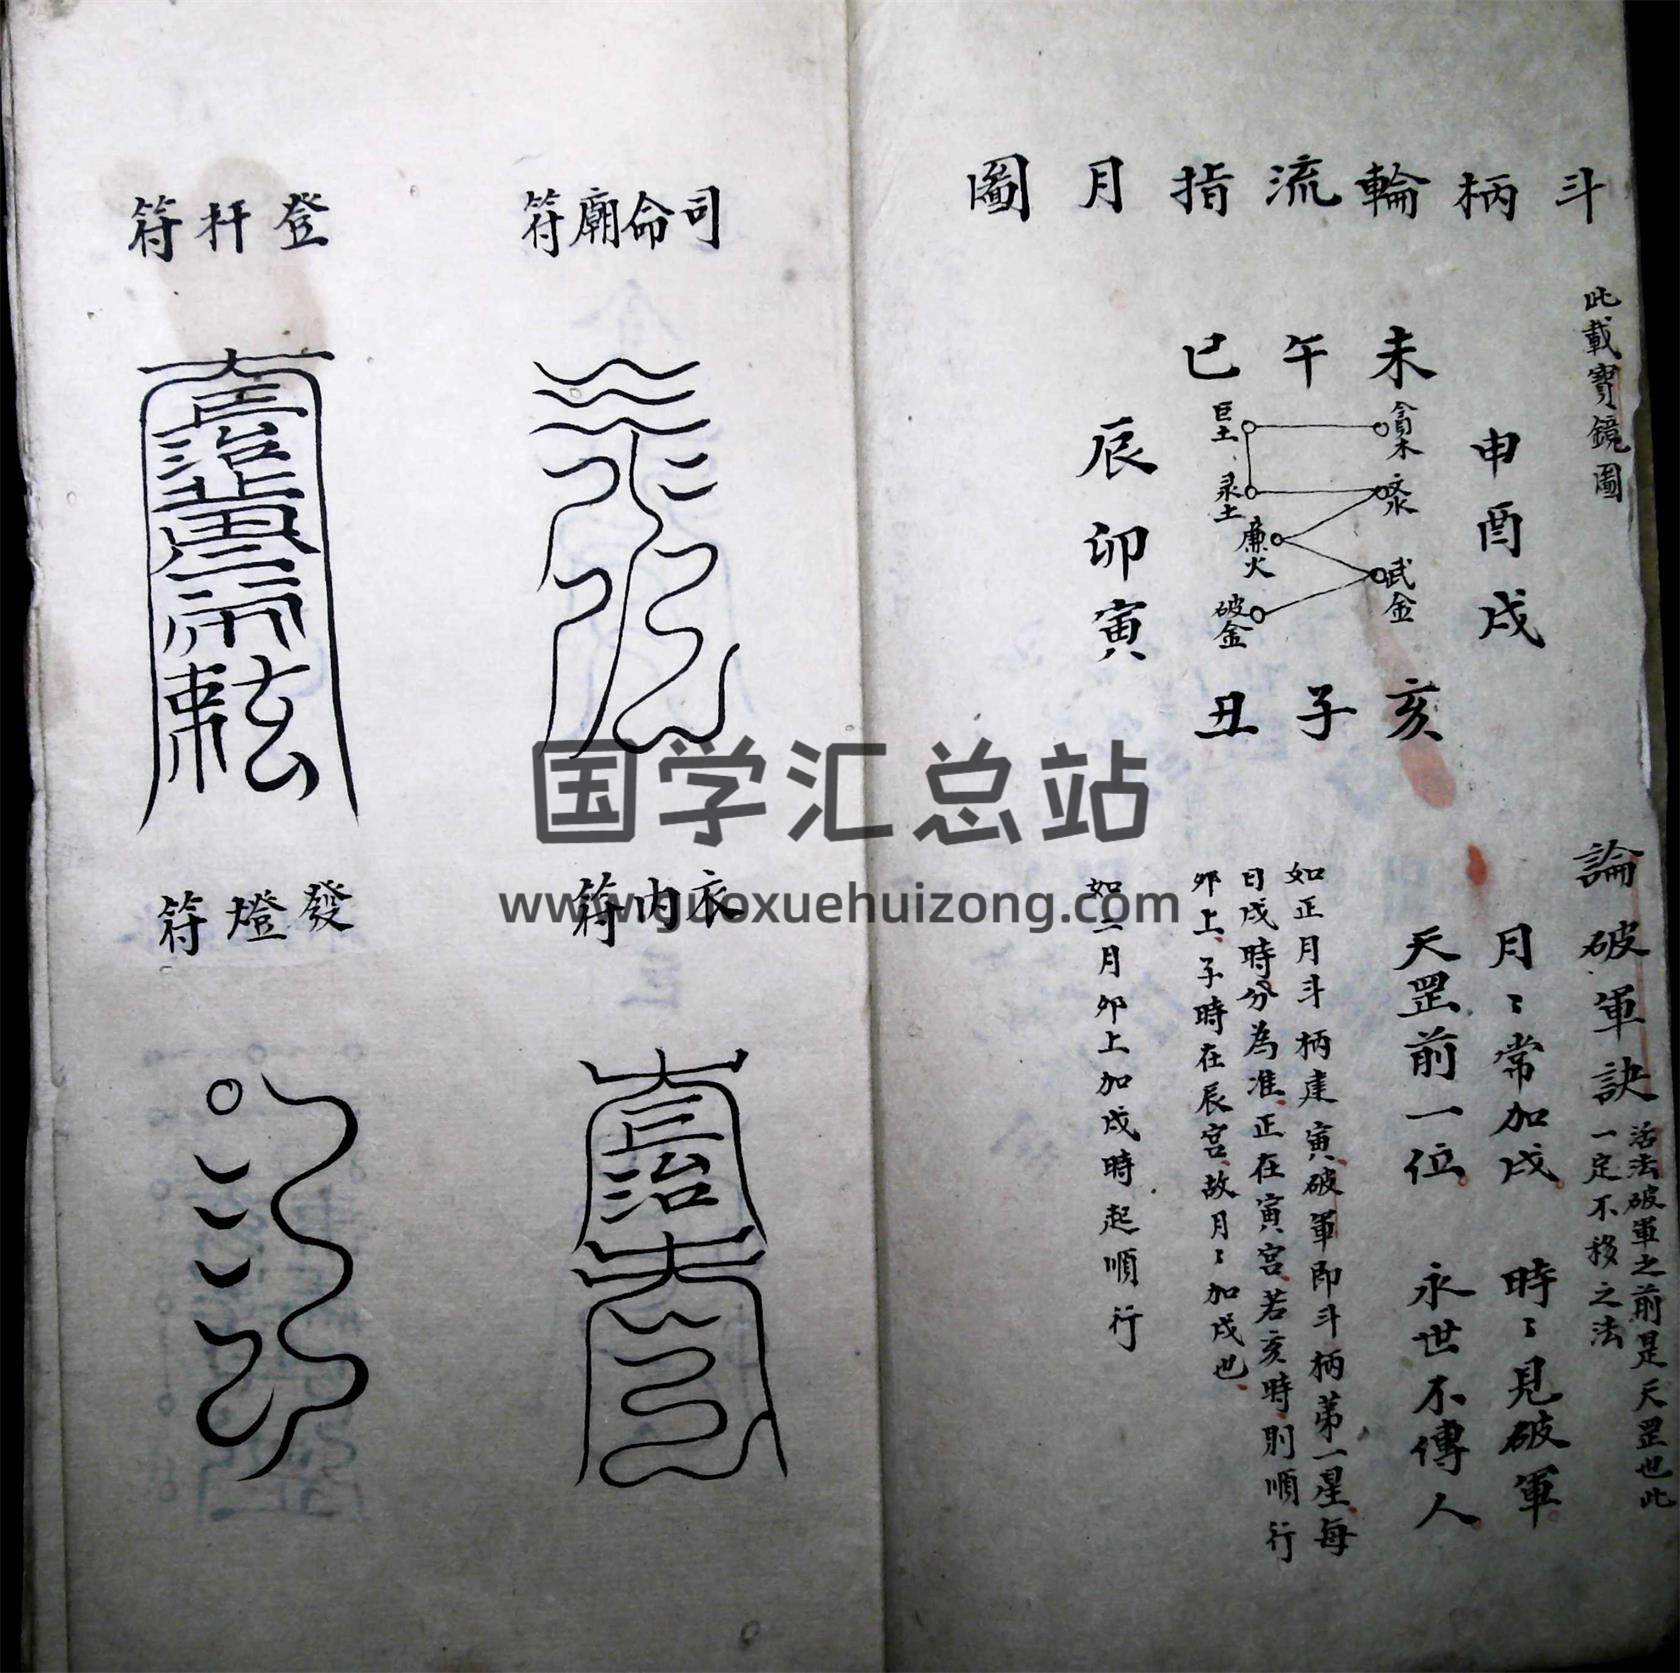 斗柄輪流指月圖
此載寶鏡圖
未
午
巳
申
酉
戌
辰
卯
寅
亥
子
丑
貪木
巨土
文水
廉火
武金
破金
論破軍訣
活法破軍之前是天罡也此
一定不移之法
月〻常加戌
時〻見破軍
天罡前一位
永世不傳人
如正月斗柄建寅破軍即斗柄苐一星每
日戌時分為准正在寅宮若亥時則順行
卯上子時在辰宮故月〻加戌也
如二月卯上加戌時起順行
司命廟符
登杆符
衣内符
發燈符
国学汇总站
www.guoxuehuizong.com